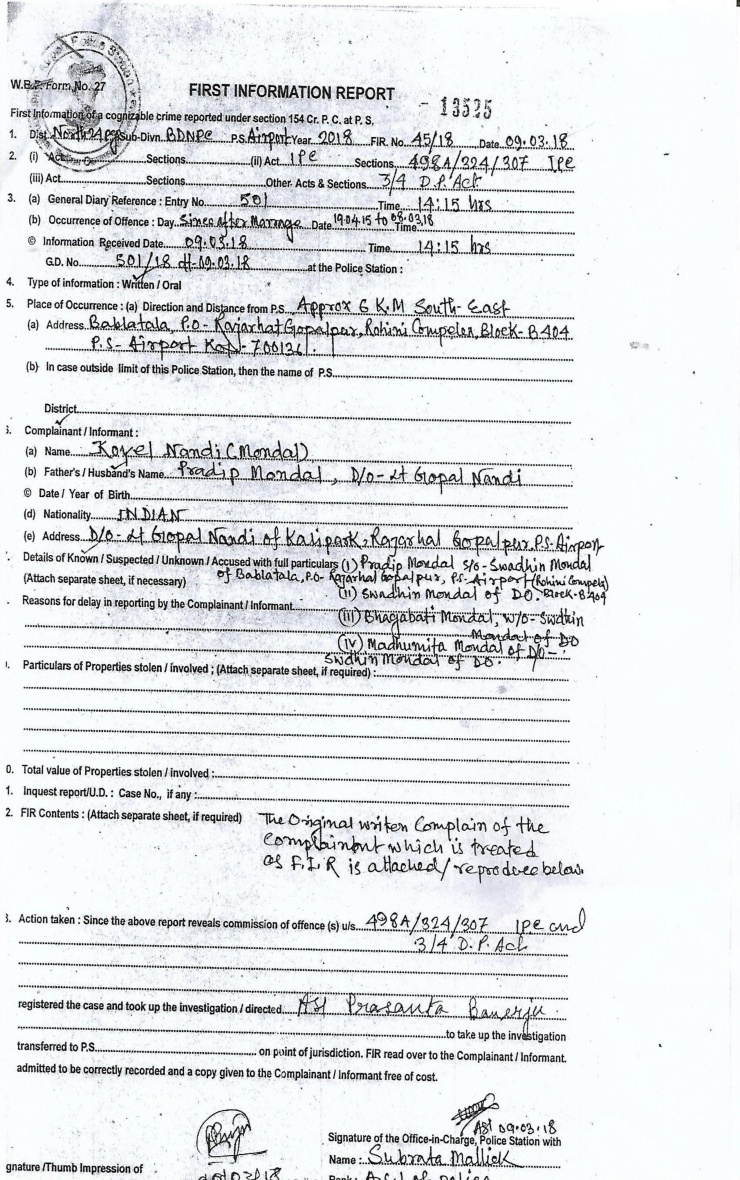 W.B.P. Form No. 27
FIRST INFORMATION REPORT
- 13525
First Information of a cognizable crime reported under section 154 Cr. P. C. at P. S.
1. Dist. North 24 Pgs Sub-Divn. BDNPC P.S. Airport Year 2018 FIR. No. 45/18 Date 09.03.18
2. (i) Act Sections (ii) Act IPC Sections 498A/324/307 IPC
(iii) Act Sections Other Acts & Sections 3/4 D.P. Act
3. (a) General Diary Reference : Entry No. 501 Time 14:15 hrs
(b) Occurrence of Offence : Day Since after Marriage Date 19.04.15 to 08.03.18 Time
© Information Received Date 09.03.18 Time 14:15 hrs
G.D. No. 501/18 dt-09.03.18 at the Police Station :
4. Type of information : Written / Oral
5. Place of Occurrence : (a) Direction and Distance from P.S. Approx 6 K.M South-East
(a) Address Bablatala, P.O- Rajarhat Gopalpur, Rohini Compelex, Block-B 404
P.S- Airport Kol- 700136.
(b) In case outside limit of this Police Station, then the name of P.S.
District
Complainant / Informant :
(a) Name Koyel Nandi (Mondal)
(b) Father's / Husband's Name Pradip Mondal, D/O- Lt Gopal Nandi
© Date / Year of Birth
(d) Nationality INDIAN
(e) Address D/O- Lt Gopal Nandi of Kasipark, Rajarhat Gopalpur, P.S- Airport
Details of Known / Suspected / Unknown / Accused with full particulars (i) Pradip Mondal S/O- Swadhin Mondal
(Attach separate sheet, if necessary) of Bablatala, P.O- Rajarhat Gopalpur, P.S- Airport (Rohini Compelex)
(ii) Swadhin Mondal of DO. Block-B 404
Reasons for delay in reporting by the Complainant / Informant
(iii) Bhagabati Mondal, W/O- Swdhin
Mondal of DO
(iv) Madhumita Mondal of D/O-
Swdhin Mondal of DO.
Particulars of Properties stolen / involved ; (Attach separate sheet, if required) :
0. Total value of Properties stolen / involved :
1. Inquest report/U.D. : Case No., if any :
2. FIR Contents : (Attach separate sheet, if required) The Original writen Complain of the
Complainant which is treated
as F.I.R is attached/ reproduce below.
3. Action taken : Since the above report reveals commission of offence (s) u/s. 498A/324/307 IPC and
3/4 D.P. Act
registered the case and took up the investigation / directed ASI Prasanta Banerjee
to take up the investigation
transferred to P.S. on point of jurisdiction. FIR read over to the Complainant / Informant.
admitted to be correctly recorded and a copy given to the Complainant / Informant free of cost.
ASI 09.03.18
Signature of the Office-in-Charge, Police Station with
Name : Subrata Mallick
gnature /Thumb Impression of
Rank : ASI of police